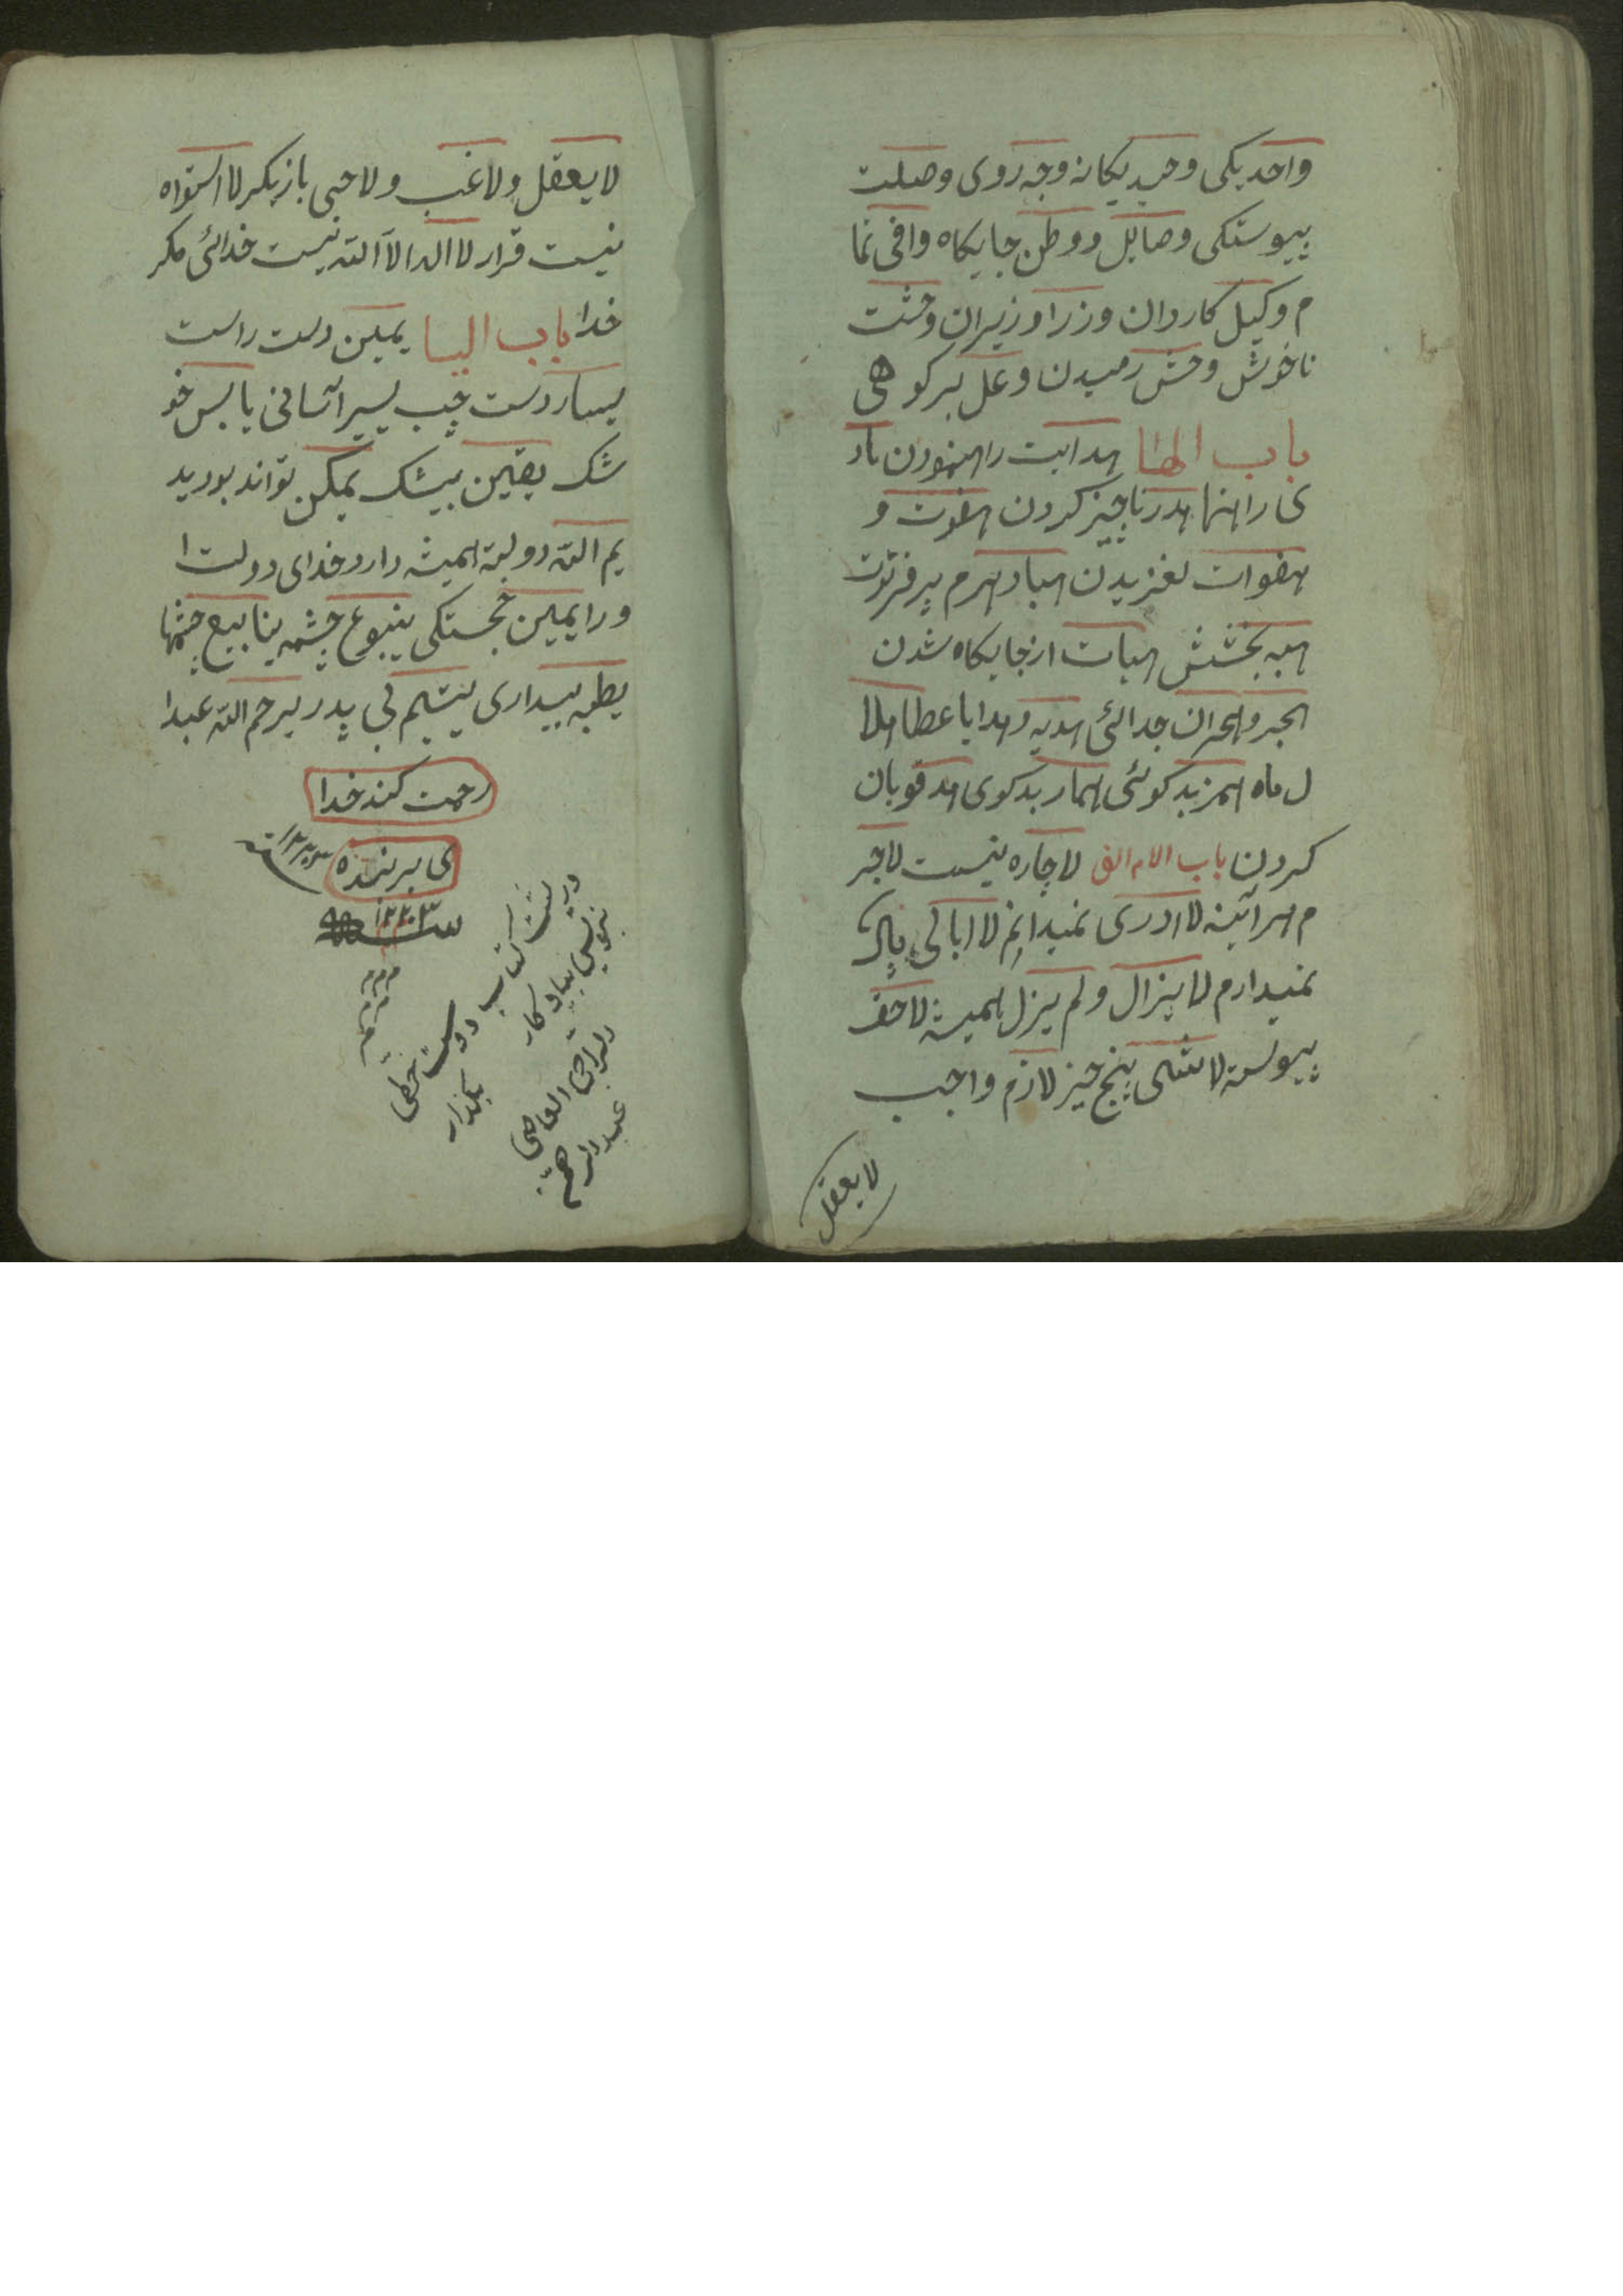 واحد یکی وحید یکانه وجه روی وصلت
پیوستکی وصایل و وطن جایکاه وافی تما
م وکیل کاردان وزرا وزیران وحشت
ناخوش وحش رمیدن وعل بز کوهی
باب الها هدایت راهنمودن هاد
ی راهنما هدر ناچیز کردن هفوت و
هفوات لغزیدن هرم پیر فرتوت
هبه بخشش هبات از جایکاه شدن
هجر و هجران جدائی هدیه و هدایا عطا هلا
ل ماه همز بد کوئی هماز بد کوی
کردن باب لام الف لا چاره نیست لاجر
م هرآئینه لا ادری نمیدانم لا ابالی باک
نمیدارم لا یزال ولم یزل همیشه لاحق
پیوسته لاشی پنج چیز لازم واجب
لا یعقل
لا یعقل ولاغب ولا حبی باز بکر لا استواه
نیست قرار لا اله الا الله نیست خدائی مکر
خدا باب الیا یمین دست راست
یسار دست چپ یسیر آسانی یابس خو
شک یقین بیشک یمکن تواند بود ید
یم الله دولته همیشه دارد خدای دولت ا
و را یمین خجستکی ینبوع چشمه ینابیع چشمها
یقظه بیداری یتیم بی پدر یرحم الله عبدا
رحمت کند خدا
ی بر بنده
سنه ۱۲۲۰۳
در پشت کتاب دوست خطی
بنویس بیادکار بکذار
الراجی العاصی